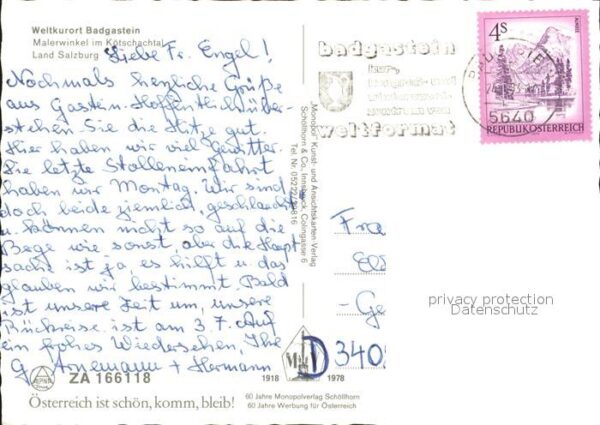 Weltkurort Badgastein
Malerwinkel im Kötschachtal
Land Salzburg
Liebe Fr. Engel!
Nochmals herzliche Grüße
aus Gastein. Hoffentlich über-
stehen Sie die Hitze gut.
Hier haben wir viel Gewitter.
Die letzte Stolleneinfahrt
haben wir Montag. Wir sind
doch beide ziemlich geschlaucht
u. können nicht so auf die
Berge wie sonst aber die Haupt
sache ist ja, es hilft u. das
glauben wir bestimmt. Bald
ist unsere Zeit um, unsere
Rückreise ist am 3.7. Auf
ein frohes Wiedersehen, Ihre
G. Arnemann + Hermann
ZA 166118
Österreich ist schön, komm, bleib!
1918 1978
60 Jahre Monopolverlag Schöllhorn
60 Jahre Werbung für Österreich
Monopol Kunst- und Ansichtskarten Verlag
Schöllhorn & Co., Innsbruck, Colingasse 6
badgastein
kur-,
zentrum von
weltformat
5640
4S
REPUBLIK ÖSTERREICH
Fra
- Ge
D 340
privacy protection
Datenschutz